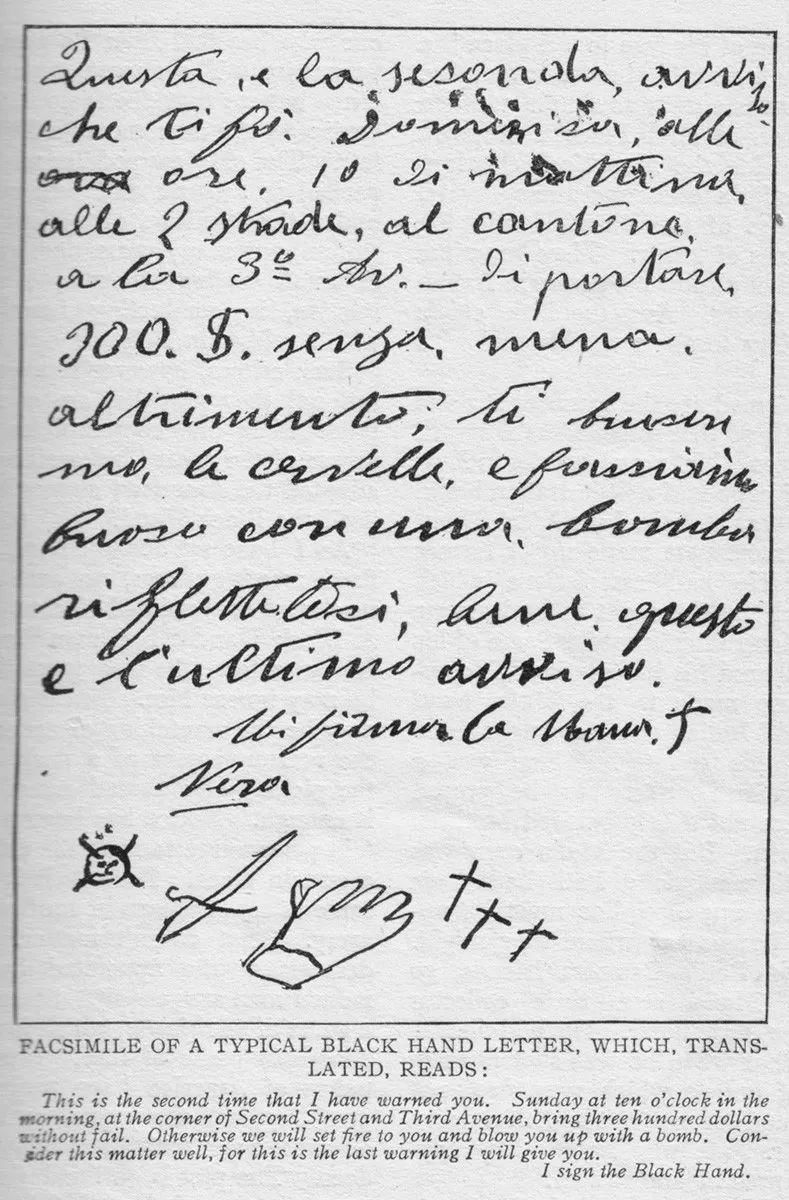 Questa, e la seconda, avvi
so.
che ti fò. Domenica, alle
ore, 10 di mattina,
alle 2 strade, al cantone,
a la 3ª Av. _ di portare,
300. $. senza, mena.
altrimento, ti
mo, le cervelle, e
con una, bomba
bene. questo
e l'ultimo avviso.
Mi firmo la Mana. †
Nera
FACSIMILE OF A TYPICAL BLACK HAND LETTER, WHICH, TRANS-
LATED, READS:
This is the second time that I have warned you. Sunday at ten o'clock in the
morning, at the corner of Second Street and Third Avenue, bring three hundred dollars
without fail. Otherwise we will set fire to you and blow you up with a bomb. Con-
sider this matter well, for this is the last warning I will give you.
I sign the Black Hand.